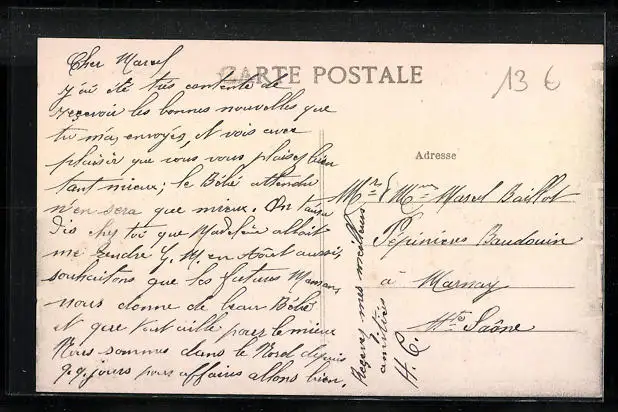 Cher Marcel
CARTE POSTALE
13 €
j'ai été très contente de
recevoir les bonnes nouvelles que
tu m'a envoyés, et vois avec
plaisir que vous vous plaisez bien
tant mieux; le Bébé attendu
n'en sera que mieux. On
dis chez toi que Madeleine allait
me rendre G. M. en Août aussi
souhaitons que les futures Mamans
nous donne de beau Bébé
et que tout aille pour le mieux
Nous sommes dans le Nord depuis
q.q. jours pour affaires allons bien.
Recevez mes meilleures
amitiés
H. C.
Adresse
Mr & Mme Marcel Baillot
Pépinières Baudouin
à Marnay
Hte Saône